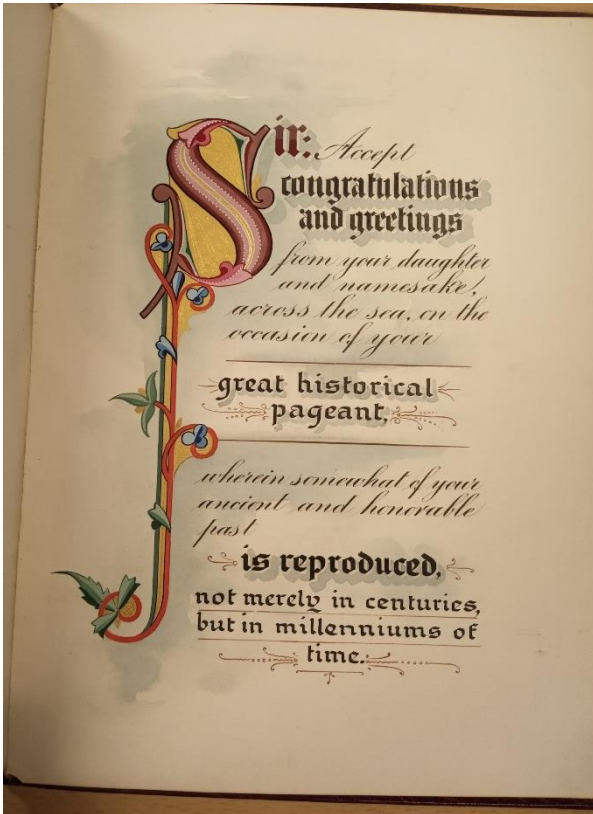 Sir: Accept
congratulations
and greetings
from your daughter
and namesake,
across the sea, on the
occasion of your
great historical
pageant,
wherein somewhat of your
ancient and honorable
past
is reproduced,
not merely in centuries,
but in millenniums of
time.